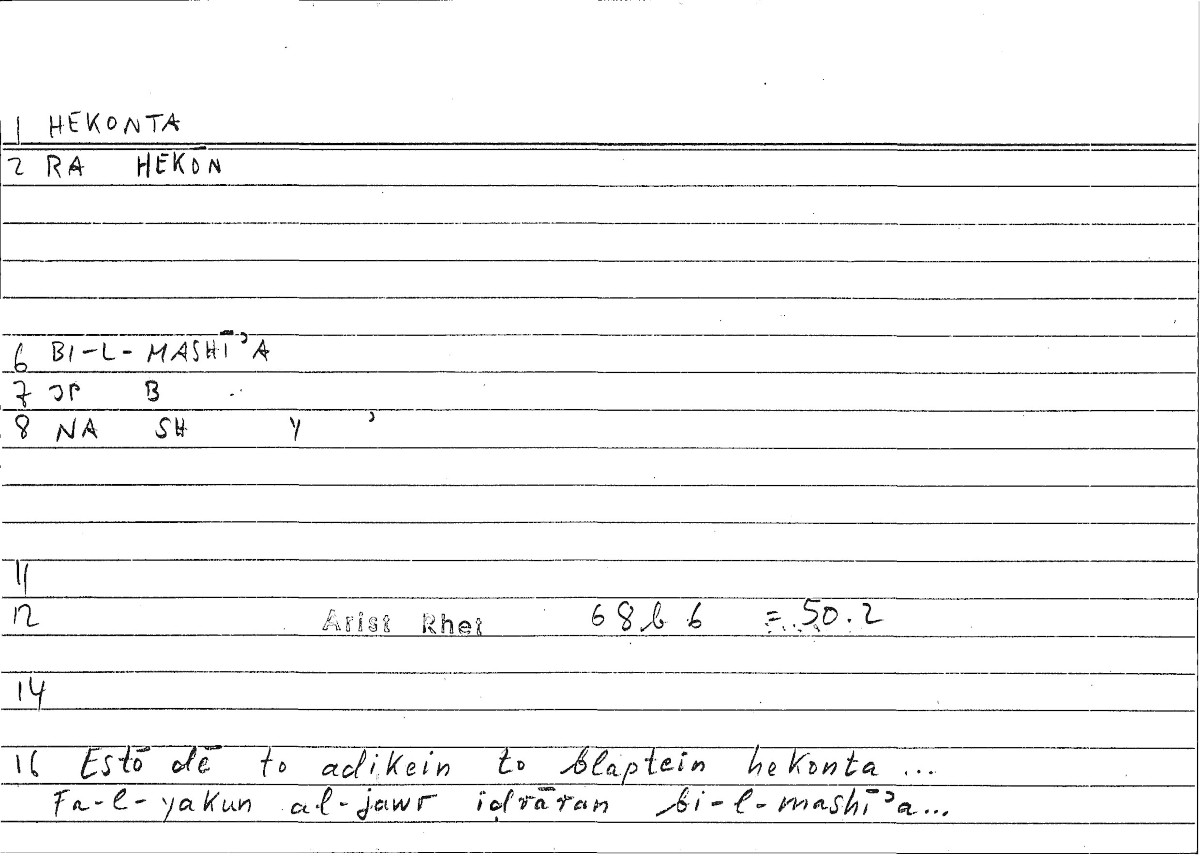 1 HEKONTA
2 RA HEKŌN
6 BI-L-MASHĪʾA
7 JP B
8 NA SH Y ʾ
11
12 Arist Rhet 68b6 = 50.2
14
16 Estō dē to adikein to blaptein hekonta ...
Fa-l-yakun al-jawr iḍrāran bi-l-mashīʾa...